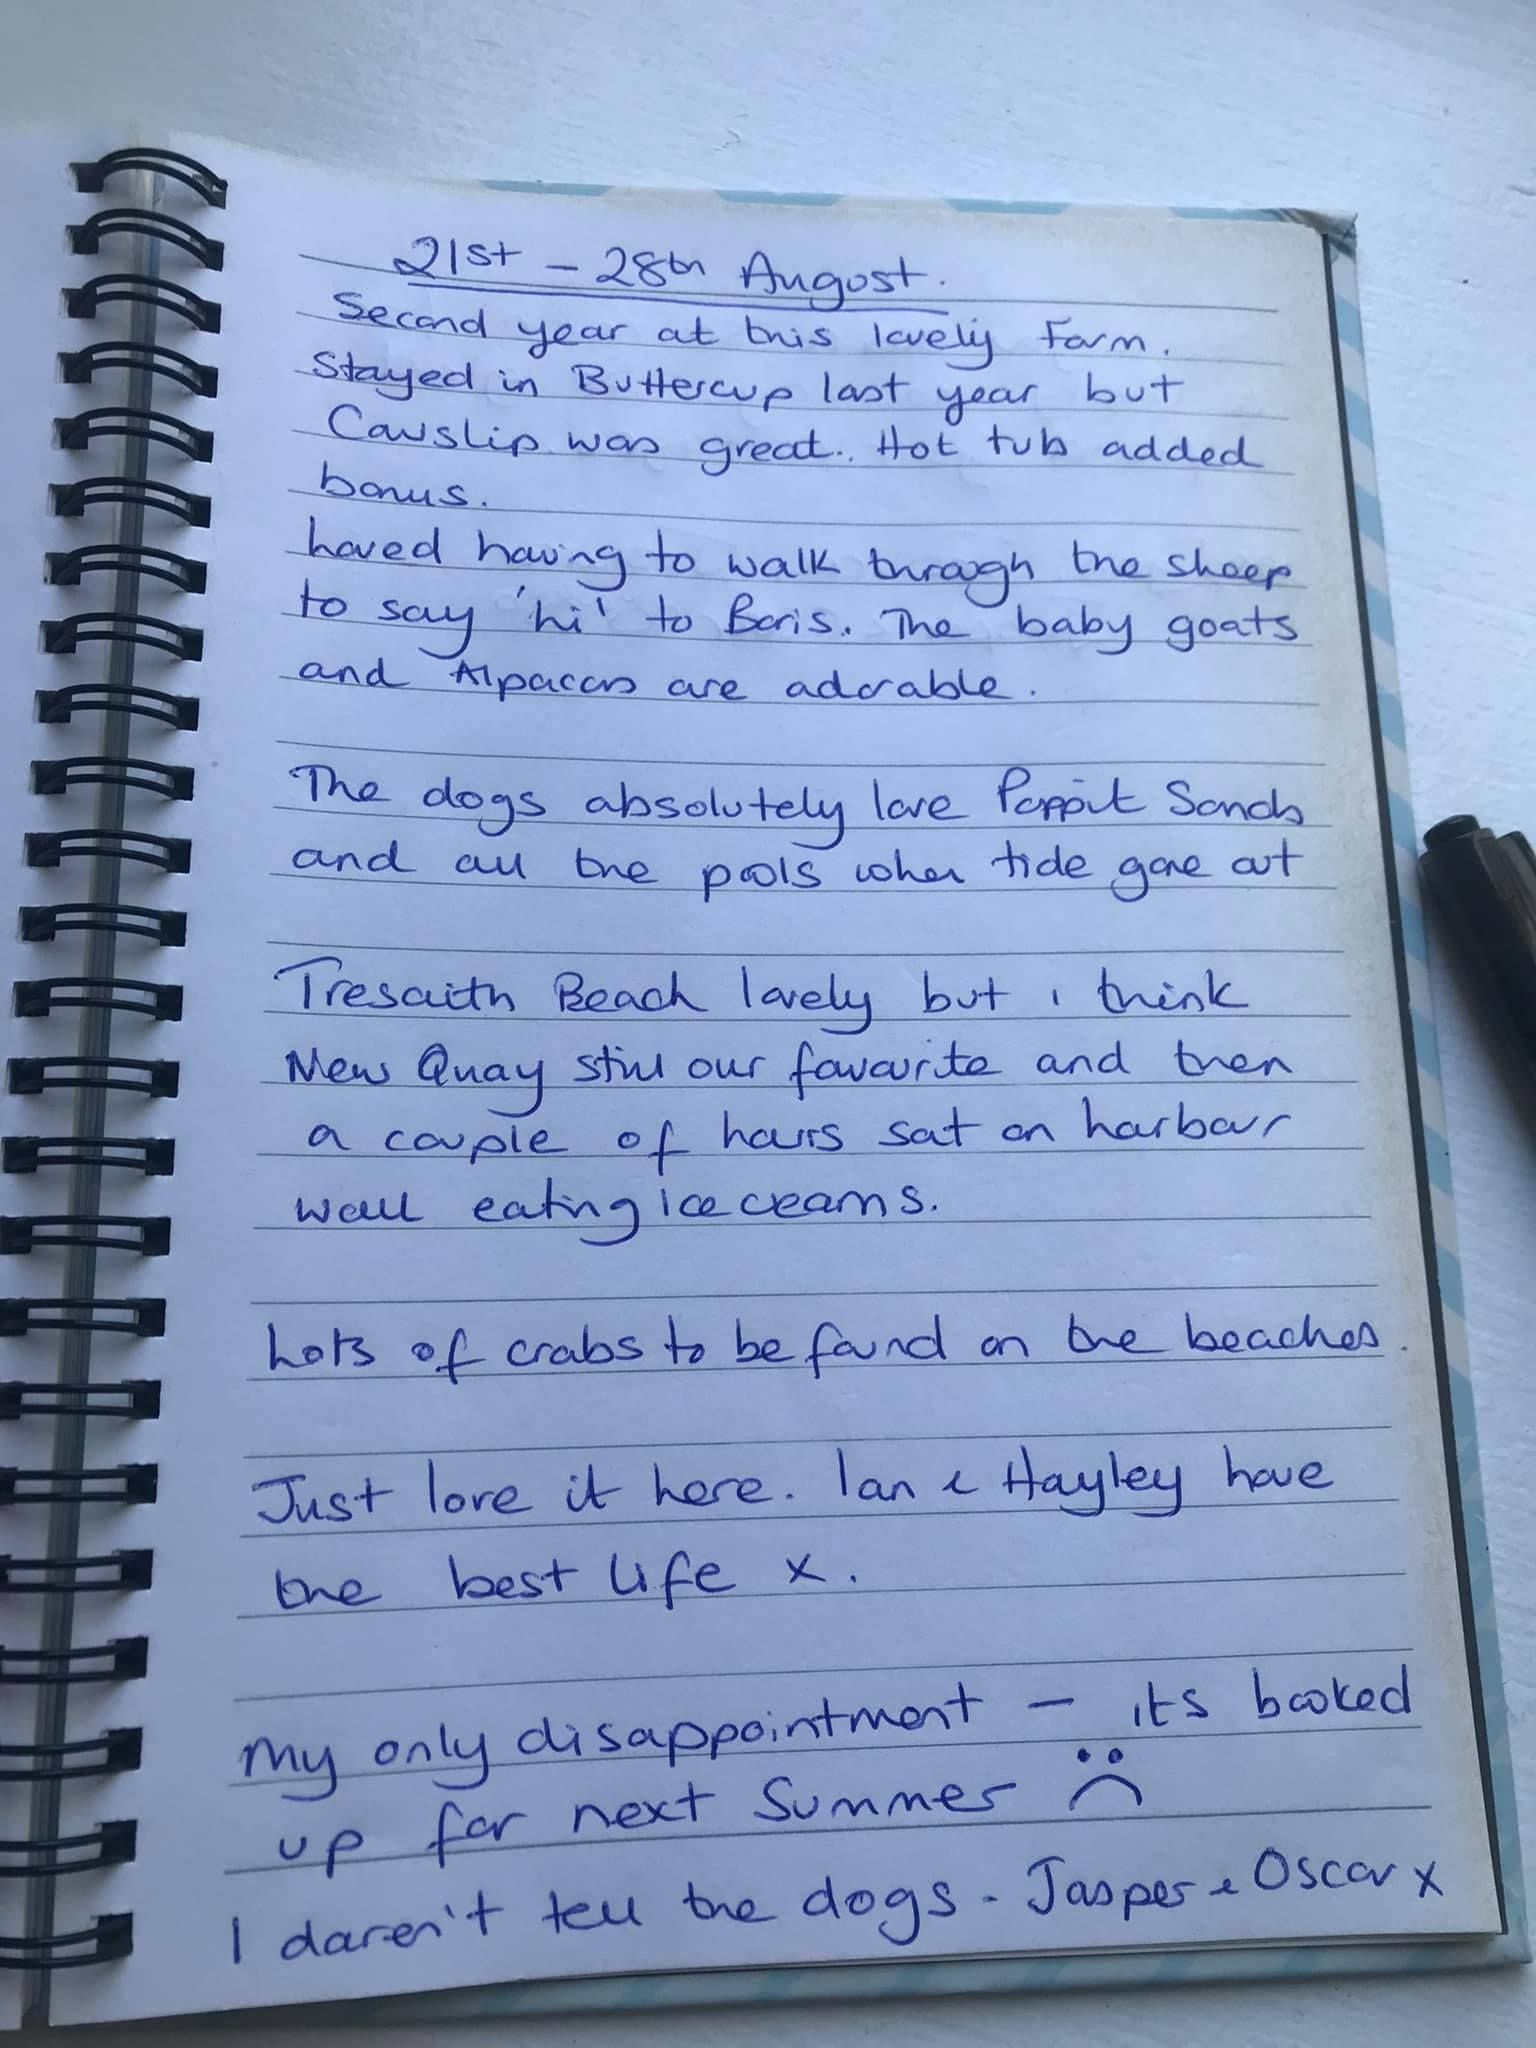 21st - 28th August.
Second year at this lovely Farm.
Stayed in Buttercup last year but
Cowslip was great.. Hot tub added
bonus.
Loved having to walk through the sheep
to say 'hi' to Boris. The baby goats
and Alpacas are adorable.
The dogs absolutely love Poppit Sands
and all the pools when tide gone out
Tresaith Beach lovely but i think
New Quay still our favourite and then
a couple of hours sat on harbour
wall eating ice creams.
Lots of crabs to be found on the beaches.
Just love it here. Ian & Hayley have
the best life x.
My only disappointment - its booked
up for next Summer ☹
I daren't tell the dogs - Jasper & Oscar x